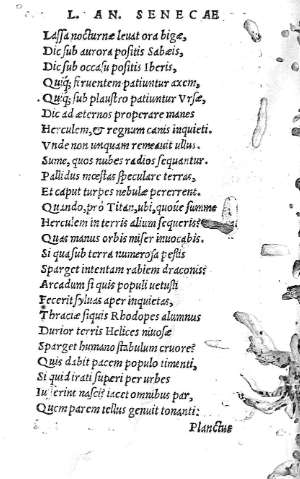 L. AN. SENECAE
Lassa nocturnæ leuat ora bigæ,
Dic sub aurora positis Sabæis,
Dic sub occasu positis Iberis,
Quiq; feruentem patiuntur axem,
Quiq; sub plaustro patiuntur Vrsæ,
Dic ad æternos properare manes
Herculem, & regnum canis inquieti.
Vnde non unquam remeauit ullus.
Sume, quos nubes radios sequantur.
Pallidus mœstas speculare terras,
Et caput turpes nebulæ pererrent.
Quando, prô Titan, ubi, quoue summe
Herculem in terris alium sequeris?
Quas manus orbis miser inuocabis.
Si qua sub terra numerosa pestis
Sparget intentam rabiem draconis?
Arcadum si quis populi uetusti
Fecerit syluas aper inquietas,
Thraciæ si quis Rhodopes alumnus
Durior terris Helices niuosæ
Sparget humano stabulum cruore?
Quis dabit pacem populo timenti,
Si quid irati superi per urbes
Iusserint nasci? iacet omnibus par,
Quem parem tellus genuit tonanti:
Planctus